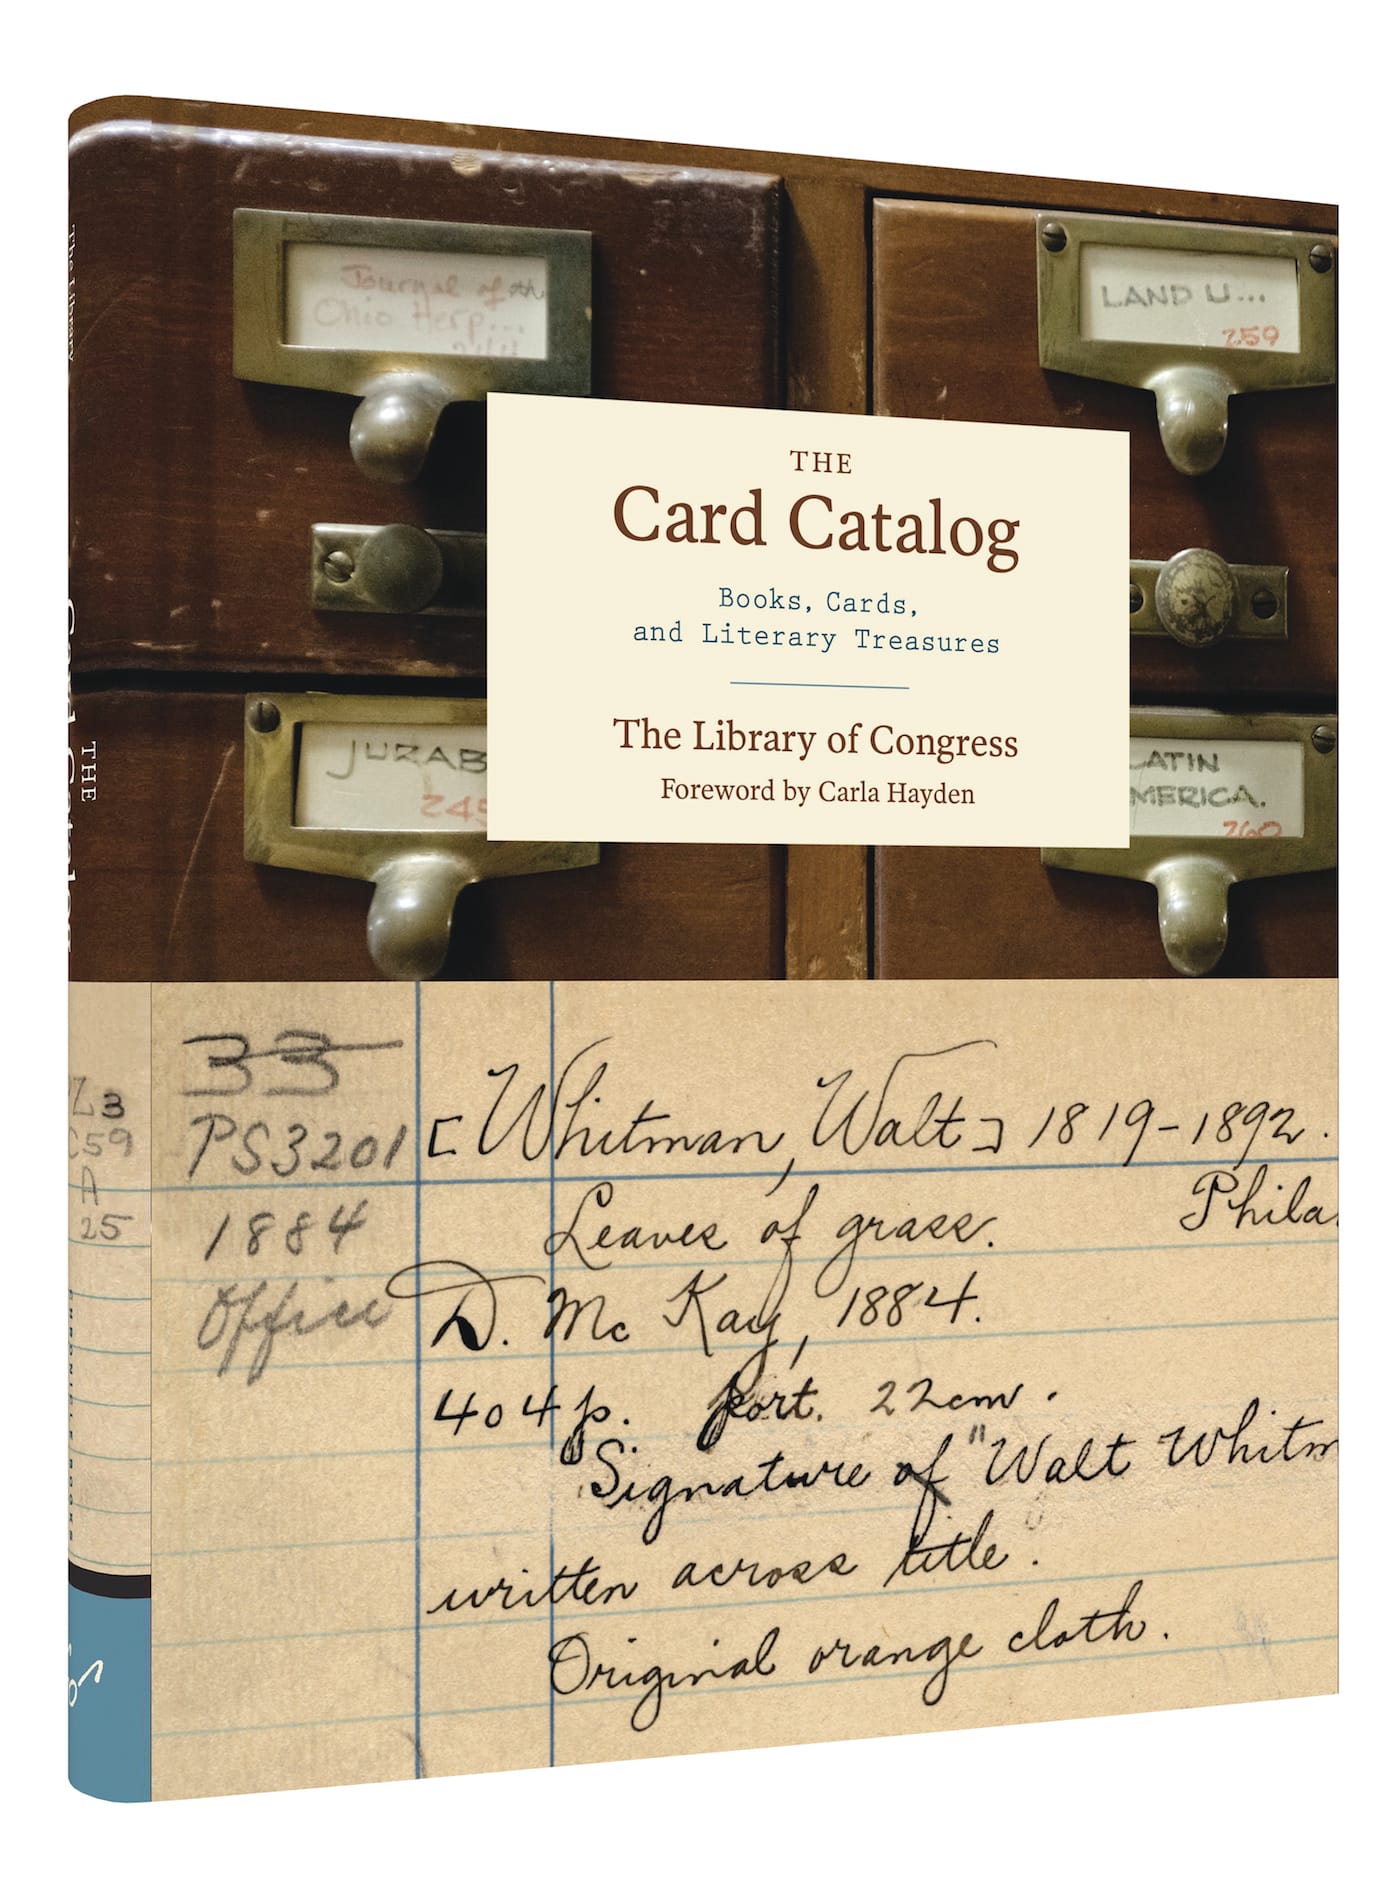 Journal of the
Ohio Herp...
LAND U...
259
THE
Card Catalog
Books, Cards,
and Literary Treasures
The Library of Congress
Foreword by Carla Hayden
JURAB
245
LATIN
MERICA.
260
The Library
THE
Card Catalog
Z3
C59
A
25
CHRONICLE BOOKS
33
PS3201
1884
Office
[Whitman, Walt] 1819-1892.
Leaves of grass. Phila.
D. McKay, 1884.
404 p. port. 22cm.
"Signature of "Walt Whitm
written across title".
Original orange cloth.